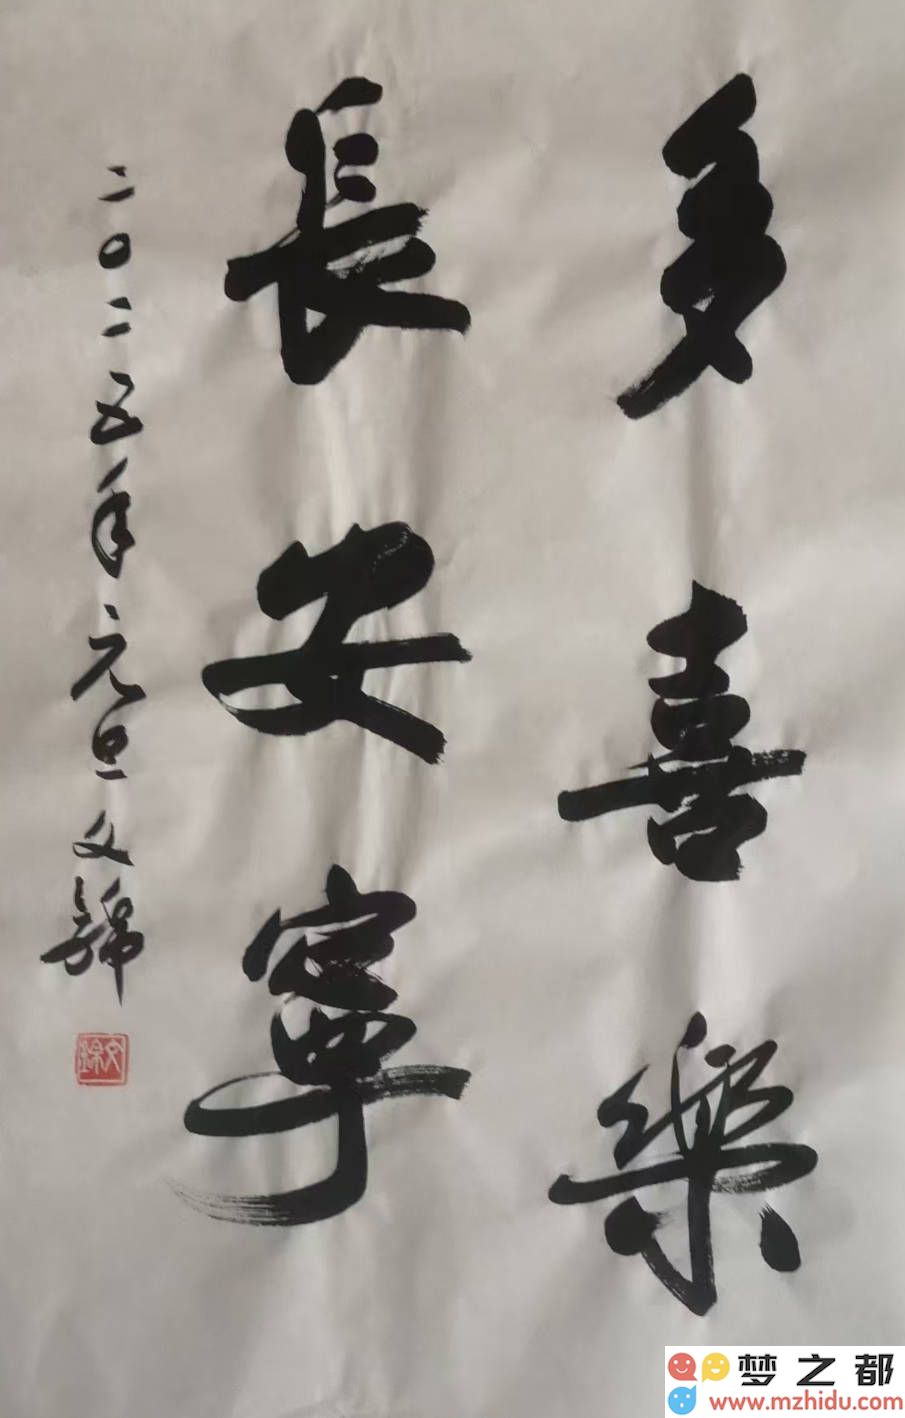 多喜樂
長安寧
二〇二五年元旦文錦
梦之都
www.mzhidu.com